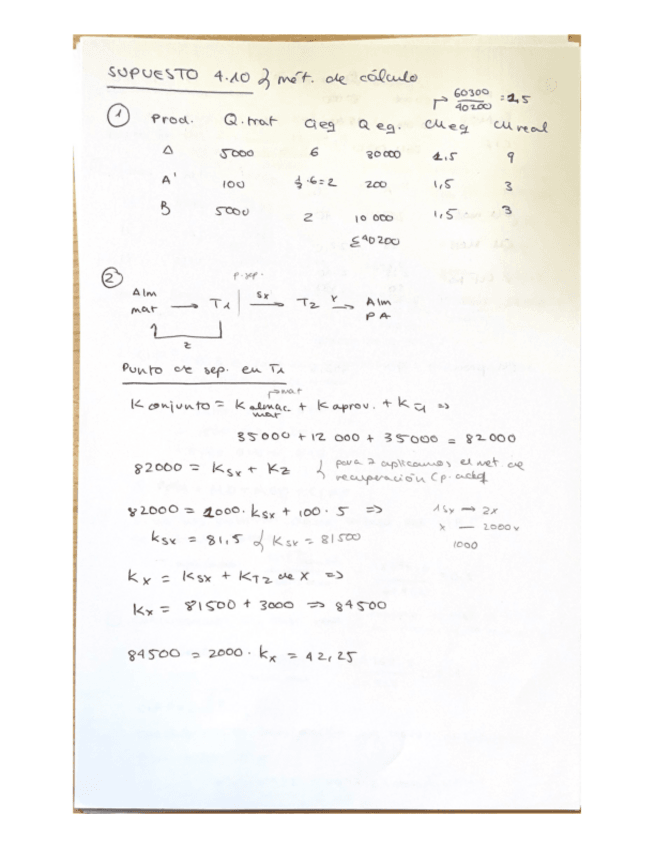 SUPUESTO 4.10 } mét. de cálculo
60300 / 40200 = 1,5
① Prod. Q.trat aeq Q eq. CMeq CM real
A 5000 6 30000 1,5 9
A' 100 1/3·6=2 200 1,5 3
B 5000 2 10 000 1,5 3
Σ40200
②
P. sep.
Alm mat → T1 | Sx → T2 Y → Alm PA
Z
Punto de sep. en T1
mat
K conjunto = K almac. mat + K aprov. + K T1 =>
35000 + 12 000 + 35000 = 82000
82000 = KSX + KZ } para z aplicamos el met. de recuperación
82000 = 1000 · KSX + 100 · 5 =>
KSX = 81,5 } KSX = 81500
1sx → 2x
x — 2000x
1000
KX = KSX + KT2 de X =>
KX = 81500 + 3000 => 84500
84500 = 2000 · KX = 42,25